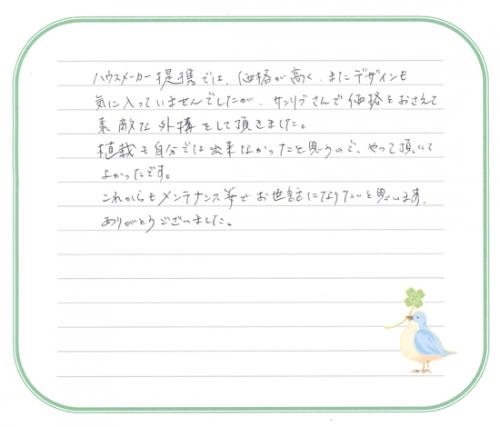 ハウスメーカー提携では、価格が高く、またデザインも
気に入っていませんでしたが、サンリブさんで価格をおさえて
素敵な外構をして頂きました。
植栽も自分では出来なかったと思うので、やって頂いて
よかったです。
これからもメンテナンス等でお世話になりたいと思います。
ありがとうございました。